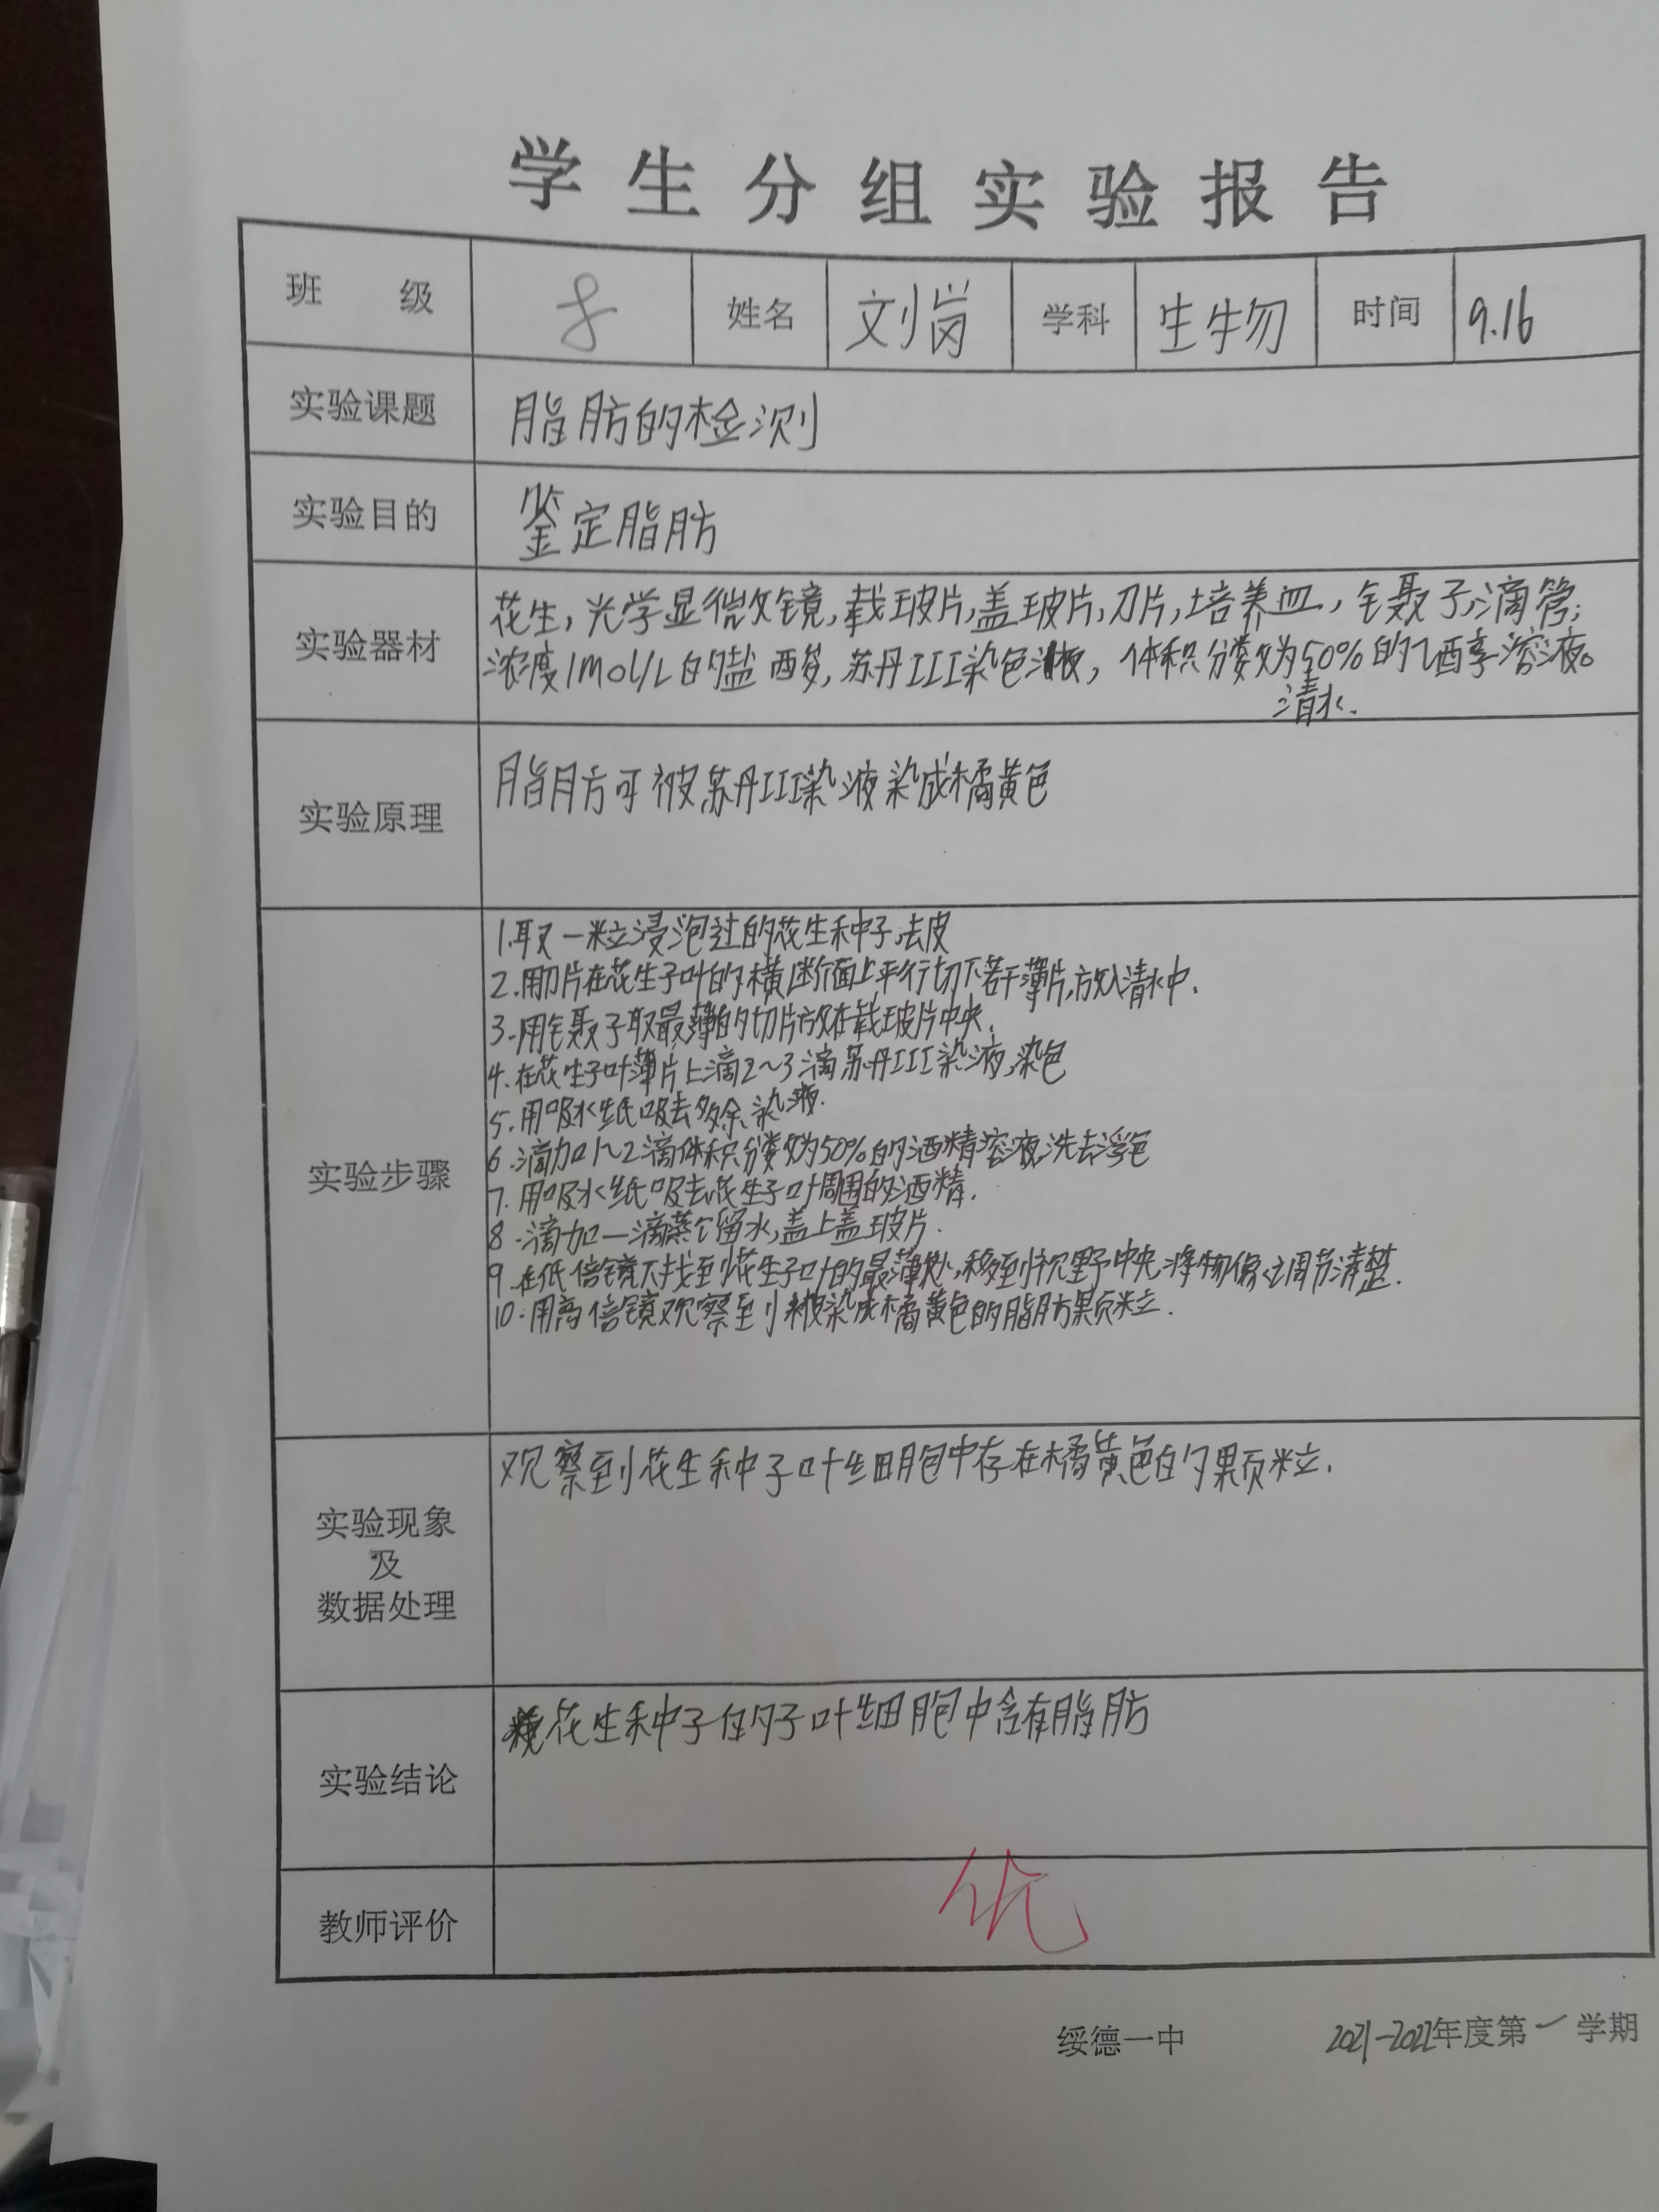 学生分组实验报告
班级 8 姓名 刘岗 学科 生生物 时间 9.16
实验课题 脂肪的检测
实验目的 鉴定脂肪
实验器材 花生，光学显微镜，载玻片，盖玻片，刀片，培养皿，镊子，滴管；
浓度1mol/L的盐酸，苏丹III染色液，体积分数为50%的乙酒享溶液。
清水.
实验原理 脂肪可被苏丹III染液染成橘黄色
实验步骤
1.取一粒浸泡过的花生种子,去皮
2.用刀片在花生子叶的横断面上平行切下若干薄片,放入清水中.
3.用镊子取最薄的切片放在载玻片中央.
4.在花生子叶薄片上滴2~3滴苏丹III染液,染色
5.用吸水纸吸去多余染液.
6.滴加1~2滴体积分数为50%的酒精溶液,洗去浮色
7.用吸水纸吸去花生子叶周围的酒精.
8.滴加一滴蒸馏水,盖上盖玻片.
9.在低倍镜下找到花生子叶的最薄处,移到视野中央,将物像调节清楚.
10.用高倍镜观察到被染成橘黄色的脂肪颗粒.
实验现象及数据处理 观察到花生种子叶细胞中存在橘黄色的颗粒.
实验结论 花生种子的子叶细胞中含有脂肪
教师评价 优
绥德一中 2021-2022年度第一学期